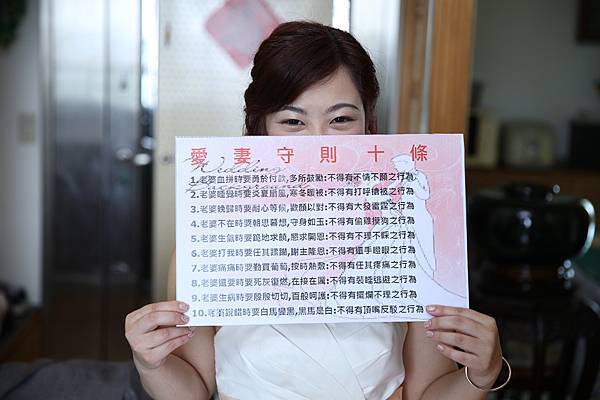 愛妻守則十條
Wedding
1.老婆血拼時要勇於付款,多所鼓勵:不得有不情不願之行為
2.老婆睡覺時要炎夏扇風,寒冬暖被:不得有打呼搶被之行為
3.老婆晚歸時要耐心等候,歡顏以對:不得有大發雷霆之行為
4.老婆不在時要朝思暮想,守身如玉:不得有偷雞摸狗之行為
5.老婆生氣時要跪地求饒,懇求開恩:不得有不理不睬之行為
6.老婆打我時要任其蹂躪,謝主隆恩:不得有還手瞪眼之行為
7.老婆痛痛時要勤買葡萄,按時熱敷:不得有任其疼痛之行為
8.老婆還要時要死灰復燃,在接在厲:不得有裝睡逃避之行為
9.老婆生病時要殷殷切切,百般呵護:不得有擺爛不理之行為
10.老婆說錯時要白馬變黑,黑馬是白:不得有頂嘴反駁之行為